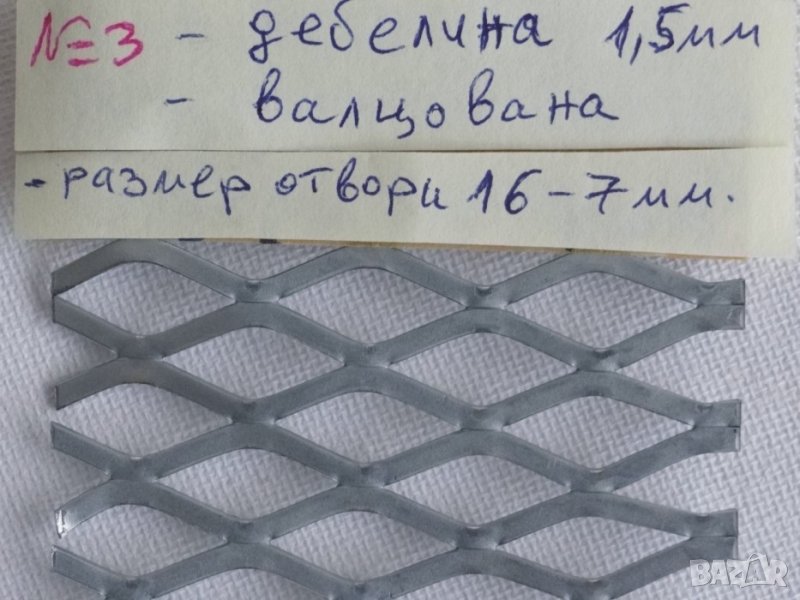 №3 - дебелина 1,5мм
- валцована
- размер отвори 16-7мм.
BAZAR